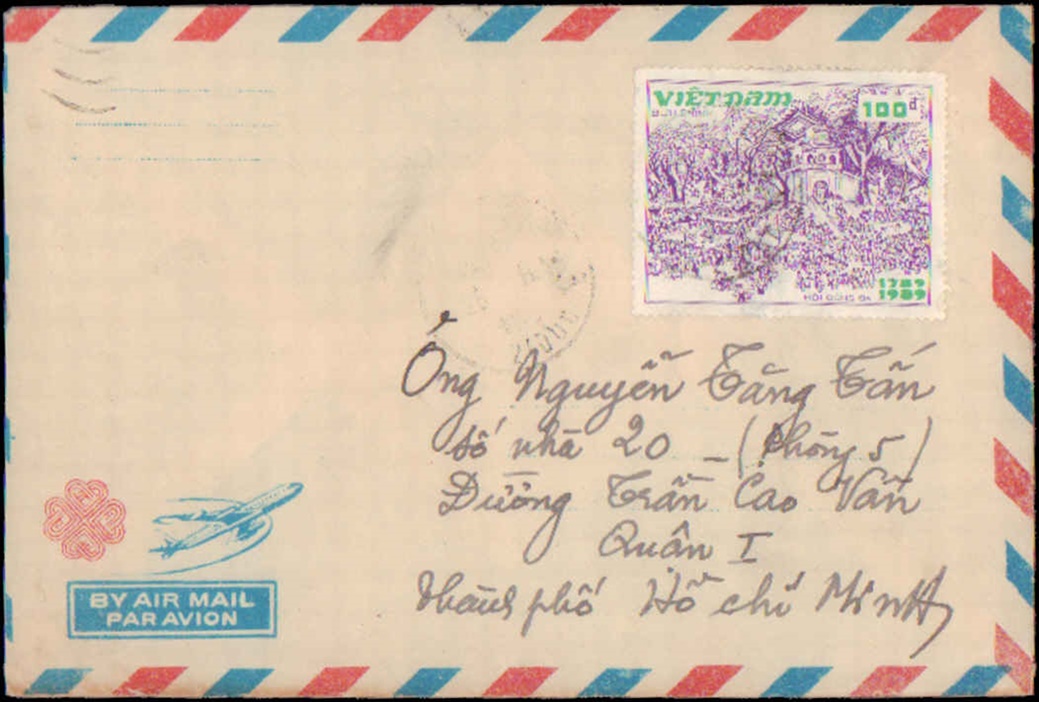 VIỆT NAM
100đ
BƯU CHÍNH
1789
1989
HỘI ĐỐNG ĐA
Ông Nguyễn Tăng Tấn
số nhà 20 _ (Phòng 5)
Đường Trần Cao Vân
Quân I
Thành phố Hồ chí MinH
BY AIR MAIL
PAR AVION